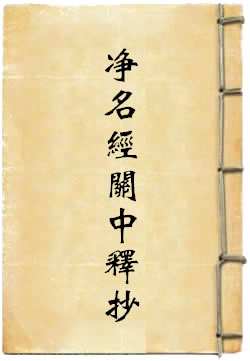 净名經關中釋抄